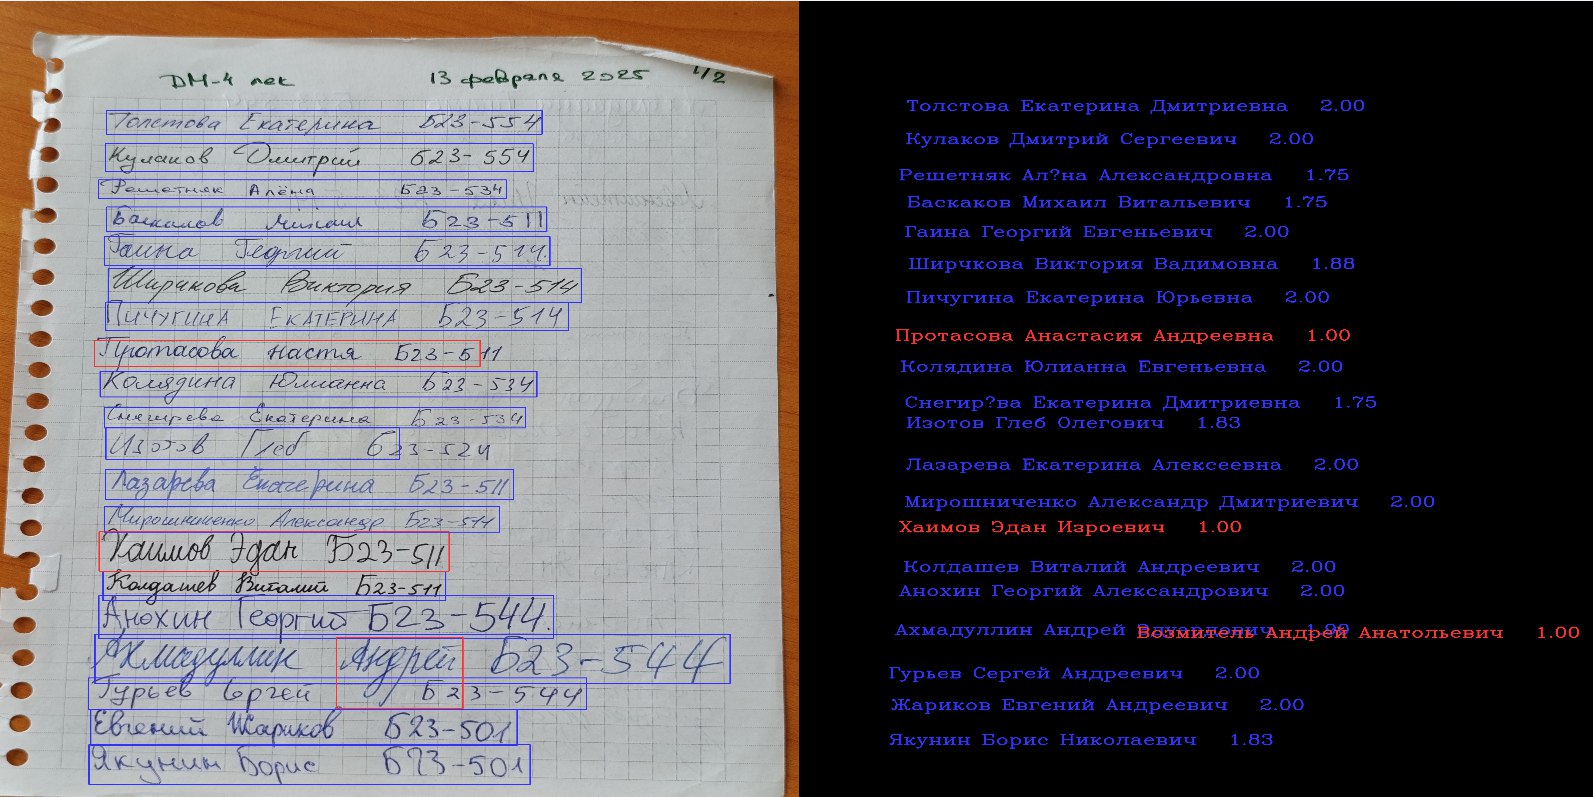 ДМ-4 лек 13 февраля 2025 1/2
Толстова Екатерина Б23-554
Кулаков Дмитрий Б23-554
Решетняк Алёна Б23-534
Баскаков Михаил Б23-511
Гаина Георгий Б23-514
Ширчкова Виктория Б23-514
ПИЧУГИНА ЕКАТЕРИНА Б23-514
Протасова Настя Б23-511
Колядина Юлианна Б23-534
Снегирева Екатерина Б23-534
Изотов Глеб Б23-524
Лазарева Екатерина Б23-511
Мирошниченко Александр Б23-514
Хаимов Эдан Б23-511
Колдашев Виталий Б23-511
Анохин Георгий Б23-544.
Ахмадуллин Андрей Б23-544
Гурьев Сергей Б23-544
Евгений Жариков Б23-501
Якунин Борис Б23-501
Толстова Екатерина Дмитриевна 2.00
Кулаков Дмитрий Сергеевич 2.00
Решетняк Ал?на Александровна 1.75
Баскаков Михаил Витальевич 1.75
Гаина Георгий Евгеньевич 2.00
Ширчкова Виктория Вадимовна 1.88
Пичугина Екатерина Юрьевна 2.00
Протасова Анастасия Андреевна 1.00
Колядина Юлианна Евгеньевна 2.00
Снегир?ва Екатерина Дмитриевна 1.75
Изотов Глеб Олегович 1.83
Лазарева Екатерина Алексеевна 2.00
Мирошниченко Александр Дмитриевич 2.00
Хаимов Эдан Изроевич 1.00
Колдашев Виталий Андреевич 2.00
Анохин Георгий Александрович 2.00
Ахмадуллин Андрей
Возмитель Андрей Анатольевич 1.00
Гурьев Сергей Андреевич 2.00
Жариков Евгений Андреевич 2.00
Якунин Борис Николаевич 1.83